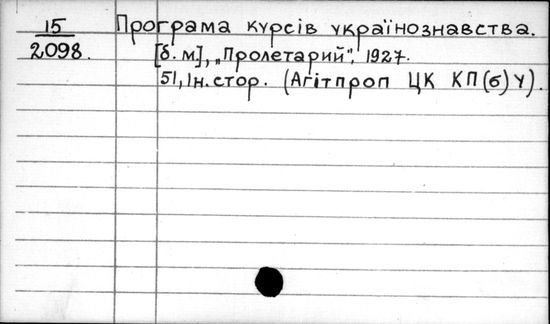 15 Програма курсів українознавства.
2098. [б.м], „Пролетарий", 1927.
51, Ін. стор. (Агітпроп ЦК КП(б)У).